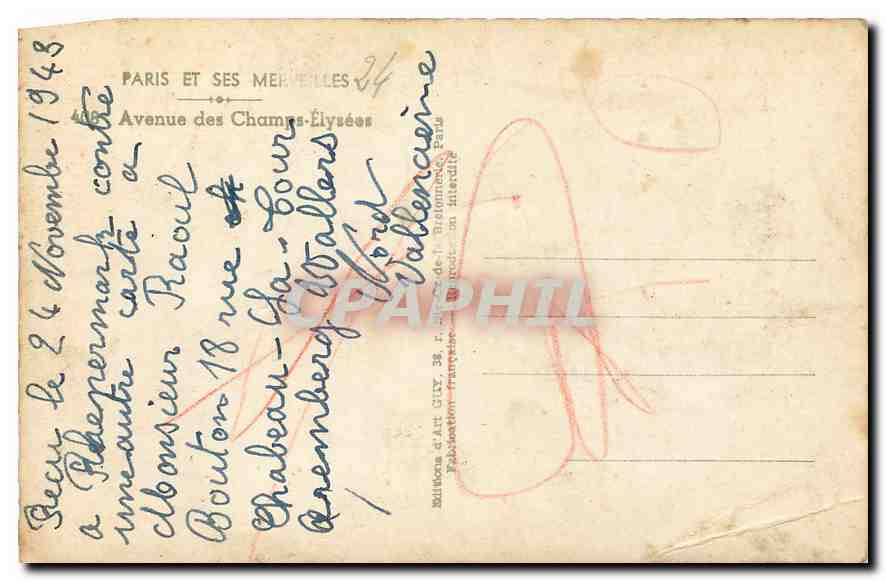 PARIS ET SES MERVEILLES
24
408 Avenue des Champs-Élysées
Recu le 24 Novembre 1943
a contre
une autre carte a
Monsieur Raoul
Bouton 18 rue
Chabeau-La-Tour
Aremberg Wallers
Nord
Vallencienne
Editions d'Art GUY, 38, r. Ste-Cx-de-la Bretonnerie, Paris
Fabrication française - Reproduction interdite
CPAPHIL